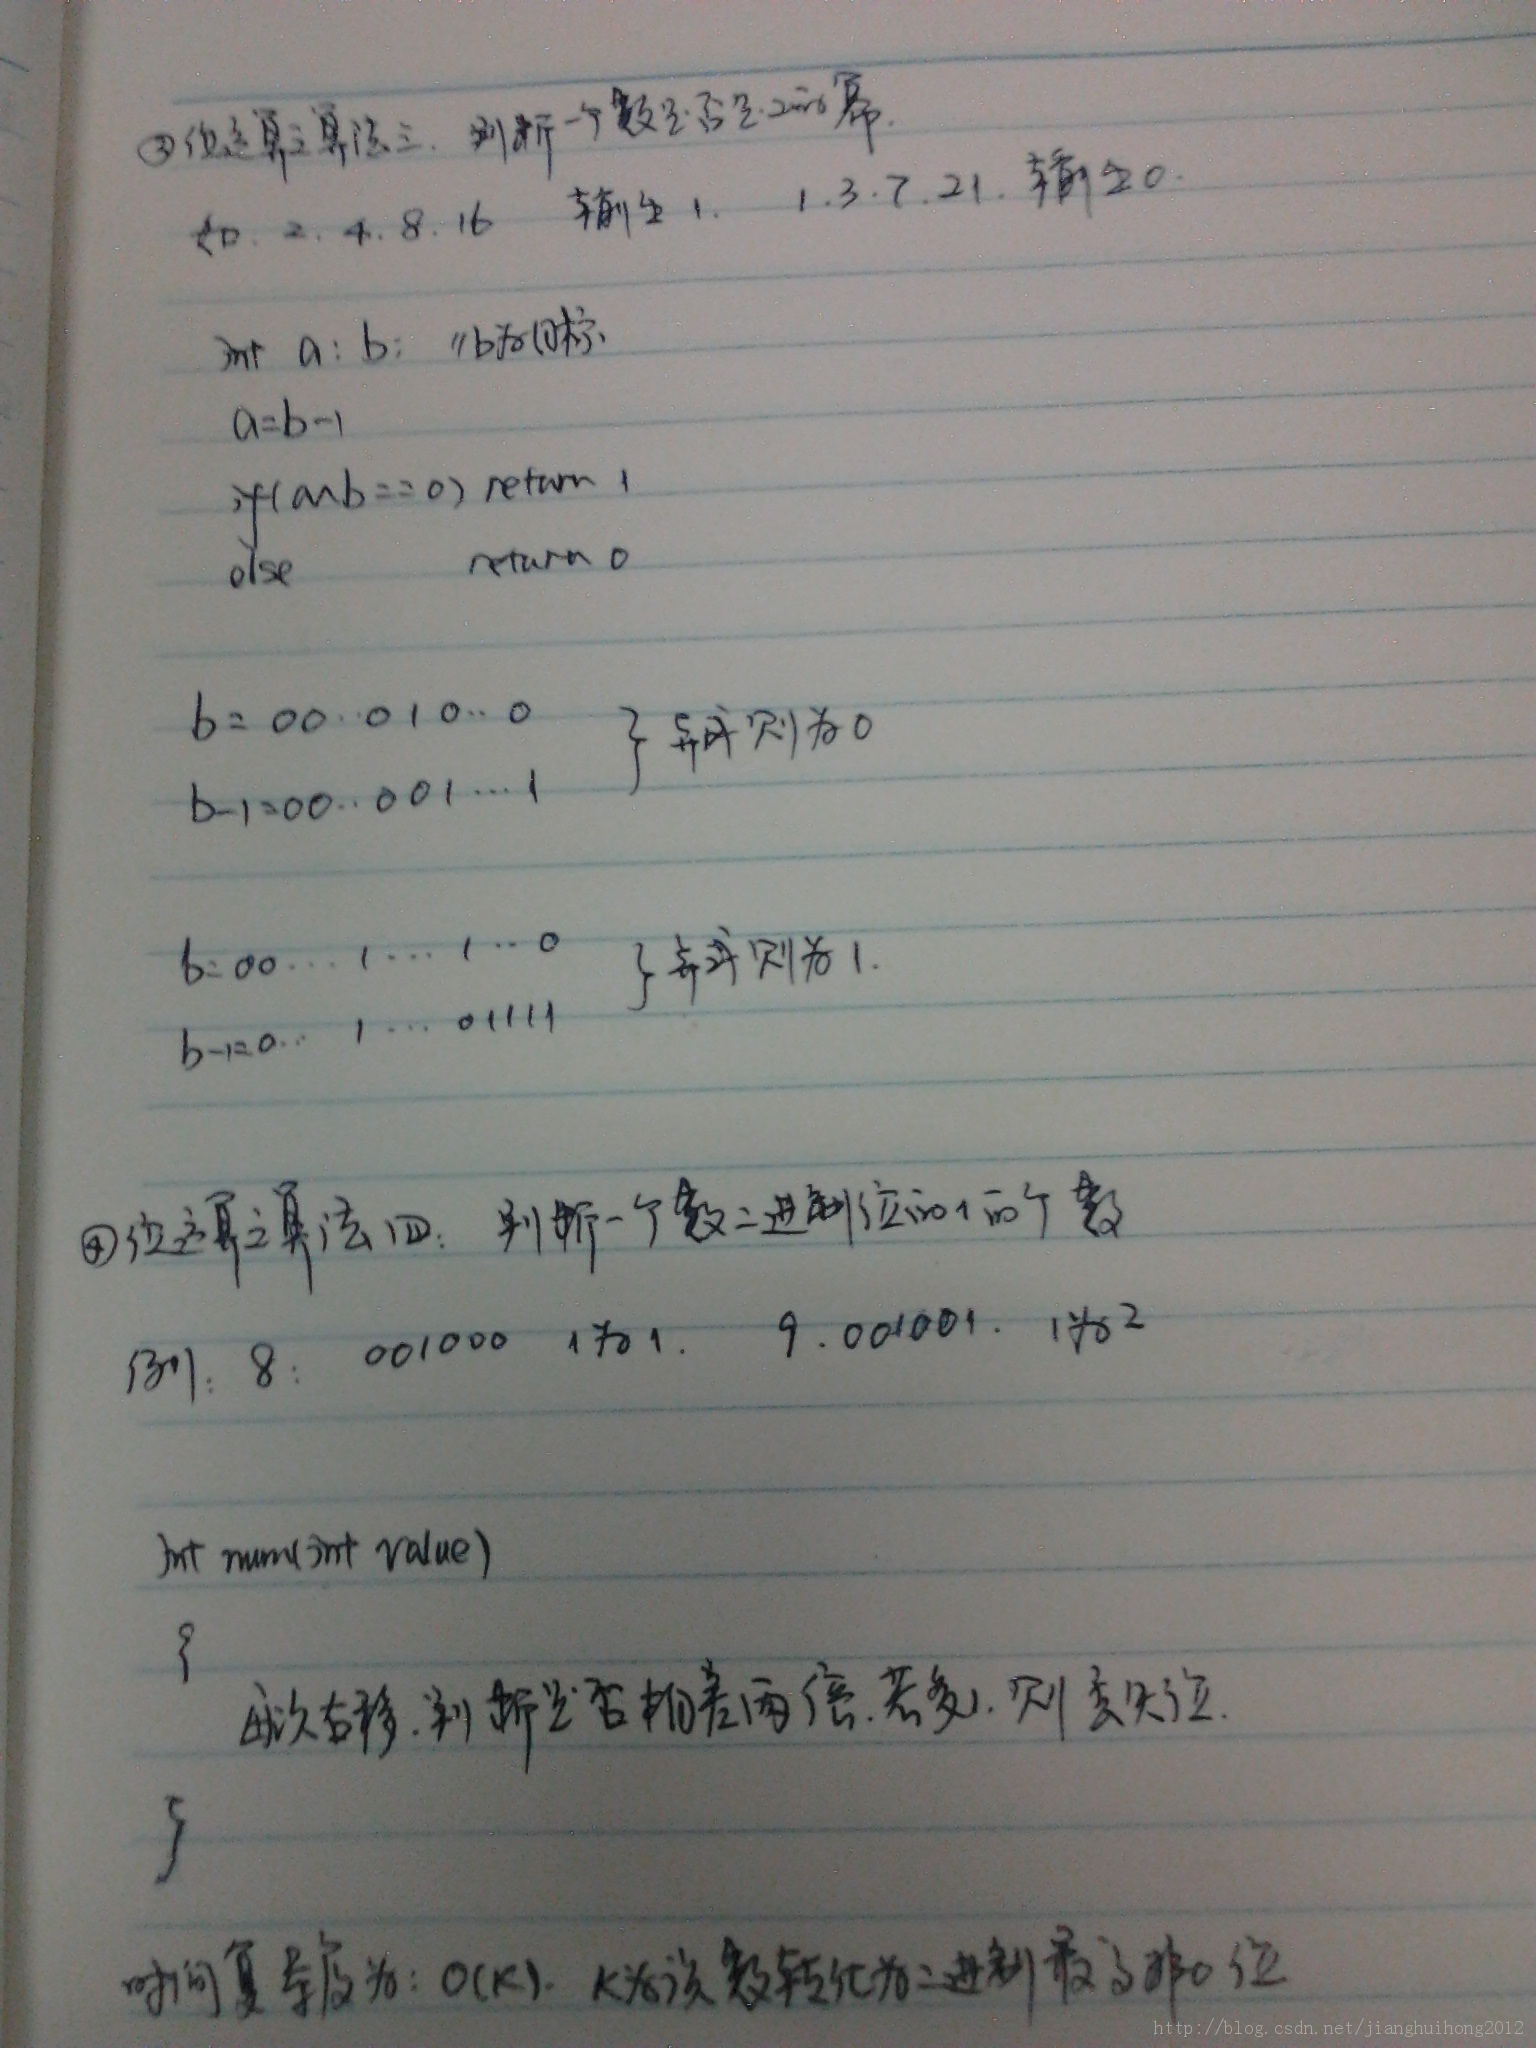 ③位运算之算法三. 判断一个数是否是2的幂.
如. 2. 4. 8. 16 输出1. 1. 3. 7. 21. 输出0.
int a; b; //b为目标
a=b-1
if(a^b==0) return 1
else return 0
b= 00..010..0 }异或则为0
b-1=00..001...1
b=00...1...1..0 }异或则为1.
b-1=0.. 1...01111
④位运算之算法四: 判断一个数二进制位的1的个数
例: 8: 001000 1为1. 9. 001001. 1为2
int num(int value)
{
每次右移.判断是否相差两倍.若多1.则丢失位.
}
时间复杂度为: O(K). K为该数转化为二进制最高那0位
http://blog.csdn.net/jianghuihong2012